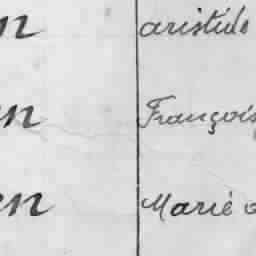 n aristide
en François
en Marie